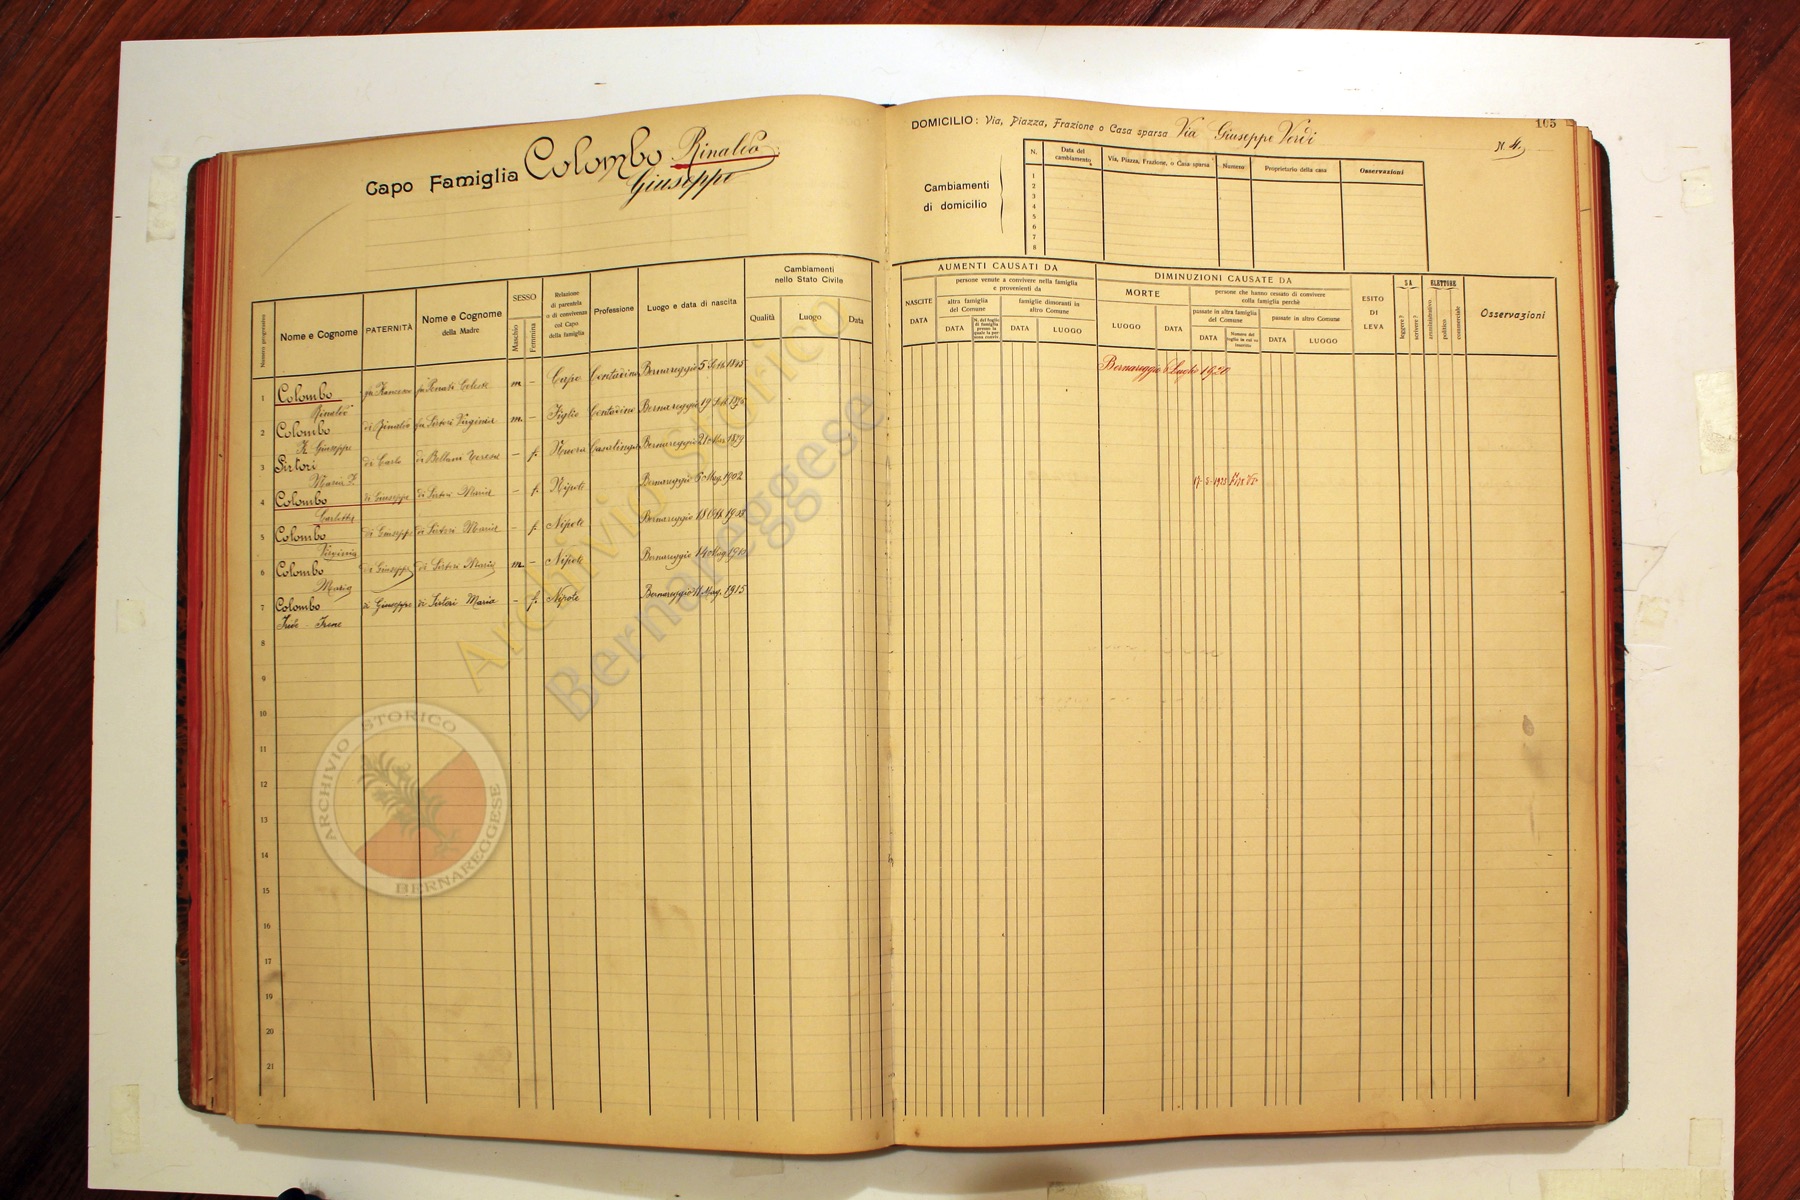 105
Capo Famiglia Colombo Rinaldo
Giuseppe
DOMICILIO: Via, Piazza, Frazione o Casa sparsa Via Giuseppe Verdi N. 4
Cambiamenti
di domicilio
N. Data del cambiamento Via, Piazza, Frazione, o Casa sparsa Numero Proprietario della casa Osservazioni
1
2
3
4
5
6
7
8
Numero progressivo
Nome e Cognome
PATERNITÀ
Nome e Cognome
della Madre
SESSO
Maschio
Femmina
Relazione
di parentela
o di convivenza
col Capo
della famiglia
Professione
Luogo e data di nascita
Cambiamenti
nello Stato Civile
Qualità
Luogo
Data
AUMENTI CAUSATI DA
NASCITE
DATA
persone venute a convivere nella famiglia
e provenienti da
altra famiglia
del Comune
DATA
famiglie dimoranti in
altro Comune
DATA
LUOGO
DIMINUZIONI CAUSATE DA
MORTE
LUOGO
DATA
persone che hanno cessato di convivere
colla famiglia perchè
passate in altra famiglia
del Comune
DATA
Numero del
foglio in cui si
inscritto
passate in altro Comune
DATA
LUOGO
ESITO
DI
LEVA
SA
leggere?
scrivere?
ELETTORE
amministrativo
politico
commerciale
Osservazioni
1 Colombo fu Francesco fu Celeste m - Capo Contadino Bernareggio 5 1845 Bernareggio 6 Luglio 1920
Rinaldo
2 Colombo di Rinaldo fu Sirtori Virginia m - Figlio Contadino Bernareggio 19
Giuseppe
3 Sirtori di Carlo di Bellani Teresa - f. Nuora Casalinga Bernareggio 21 1879
Maria
4 Colombo di Giuseppe di Sirtori Maria - f. Nipote Bernareggio 6 Mag. 1902 17-5-1925
Carlotta
5 Colombo di Giuseppe di Sirtori Maria - f. Nipote Bernareggio 18
Virginia
6 Colombo di Giuseppe di Sirtori Maria m - Nipote Bernareggio 14
Mario
7 Colombo di Giuseppe di Sirtori Maria - f. Nipote Bernareggio 11 Mag. 1915
Irene
8
9
10
11
12
13
14
15
16
17
19
19
20
21
Archivio Storico
Bernareggese
ARCHIVIO STORICO
BERNAREGGESE